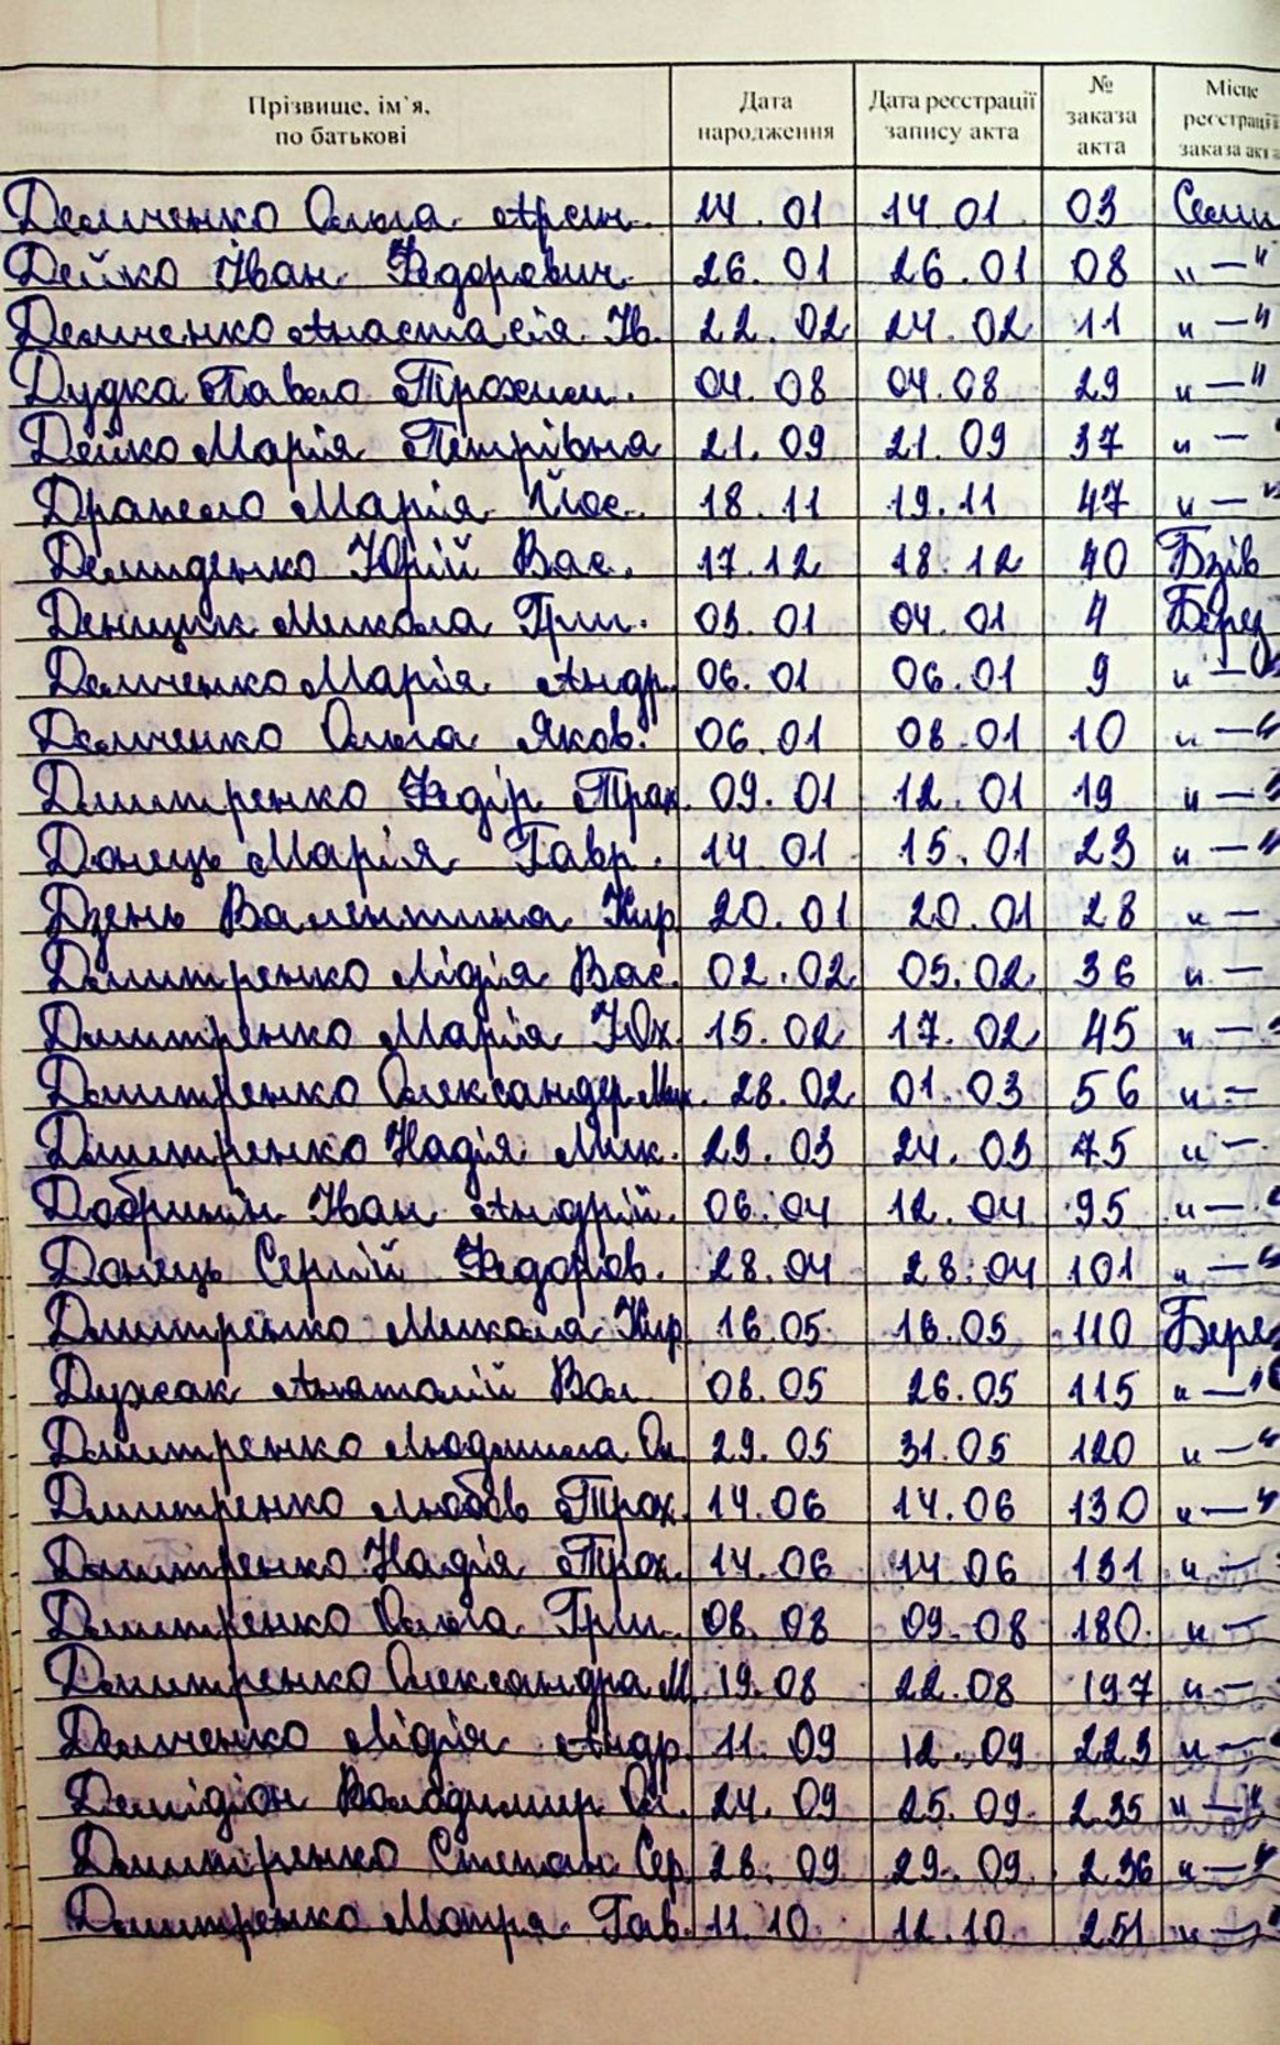 Прізвище, ім`я, по батькові | Дата народження | Дата реєстрації запису акта | № заказа акта | Місце реєстрації заказа акта
Демченко Ольга Арсен. 14.01 14.01 03 Семи
Дейко Іван Федорович 26.01 26.01 08 "—"
Демченко Анастасія Ів. 22.02 24.02 11 "—"
Дудка Павло Трохим. 04.08 04.08 29 "—"
Дейко Марія Петрівна 21.09 21.09 37 "—
Драпело Марія Йос. 18.11 19.11 47 "—"
Демиденко Юрій Вас. 17.12 18.12 40 Бзів
Денщик Микола Гри. 03.01 04.01 4 Берез
Демченко Марія Андр. 06.01 06.01 9 "—"
Демченко Ольга Яков. 06.01 08.01 10 "—"
Дмитренко Федір Трох. 09.01 12.01 19 "—"
Донець Марія Гавр. 14.01 15.01 23 "—"
Дзень Валентина Кир. 20.01 20.01 28 "—
Дмитренко Лідія Вас. 02.02 05.02 36 "—
Дмитренко Марія Юх. 15.02 17.02 45 "—"
Дмитренко Олександер Мик. 28.02 01.03 56 "—
Дмитренко Надія Мик. 23.03 24.03 75 "—
Добринін Іван Андрій. 06.04 12.04 95 "—"
Донець Сергій Федоров. 28.04 28.04 101 "—"
Дмитренко Микола Кир. 16.05 16.05 110 Бере
Дужак Анатолій Вол 08.05 26.05 115 "—"
Дмитренко Людмила Ол. 29.05 31.05 120 "—"
Дмитренко Любов Трох. 14.06 14.06 130 "—"
Дмитренко Надія Трох. 14.06 14.06 131 "—
Дмитренко Ольга Гри. 08.08 09.08 180 "—
Дмитренко Олександра М. 19.08 22.08 197 "—
Демченко Лідія Андр. 11.09 12.09 223 "—"
Демідіон Володимир Ол. 24.09 25.09 235 "—"
Дмитренко Степан Сер. 28.09 29.09 236 "—"
Дмитренко Мотря Гав. 11.10 12.10 251 "—"